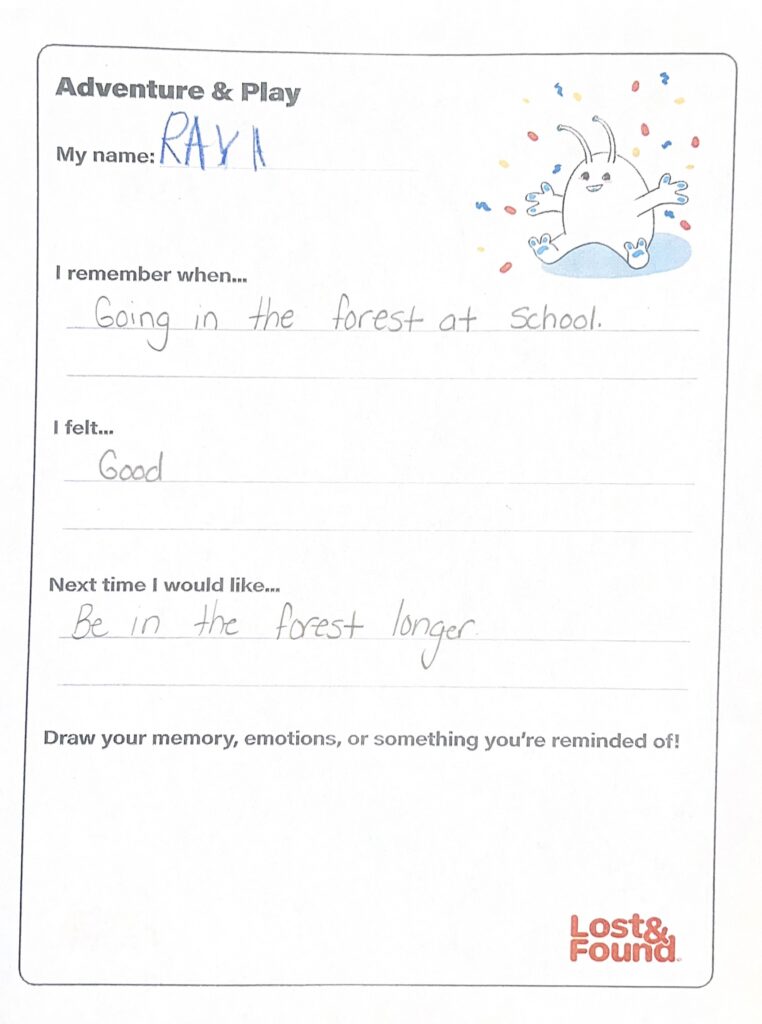 Adventure & Play
My name: RAYA
I remember when...
Going in the forest at school.
I felt...
Good
Next time I would like...
Be in the forest longer.
Draw your memory, emotions, or something you're reminded of!
Lost&
Found